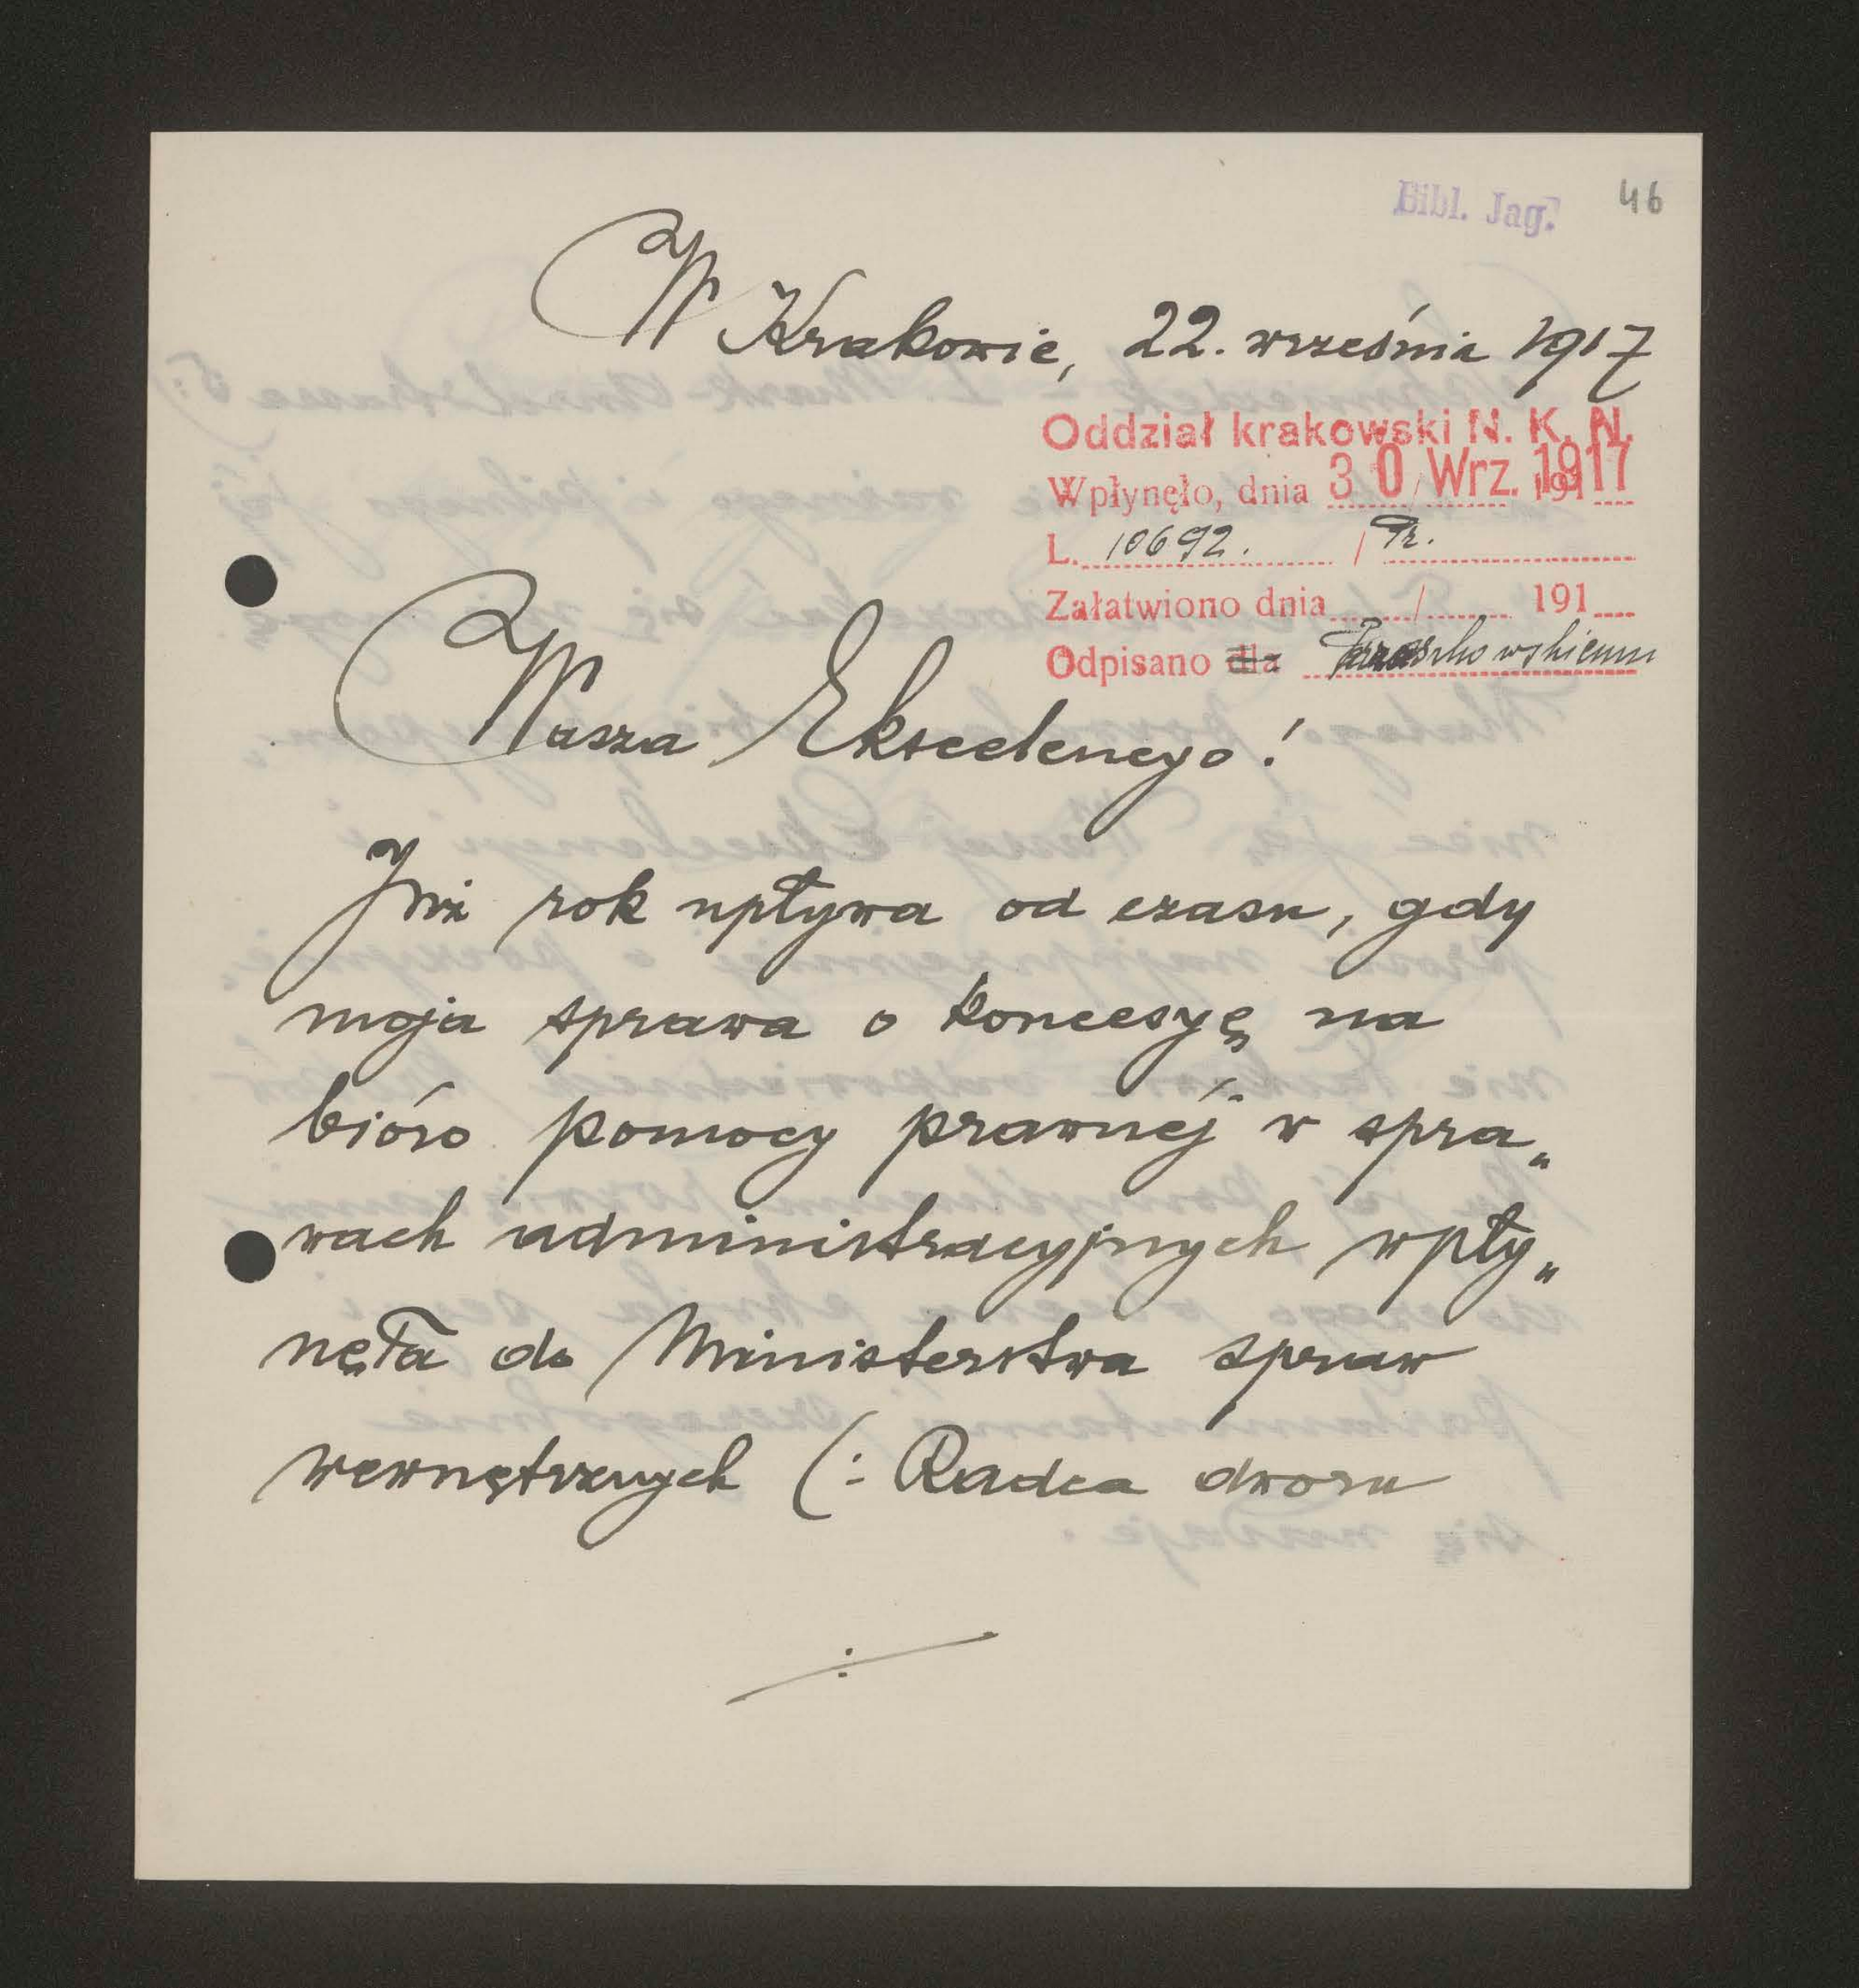 Bibl. Jag. 46
W Krakowie, 22. września 1917
Oddział krakowski N. K. N.
Wpłynęło, dnia 30 Wrz. 1917 191
L. 10692. / Pr.
Załatwiono dnia / 191
Odpisano dla
Wasza Ekscelencyo!
Już rok upływa od czasu, gdy
moja sprawa o koncesyę na
bióro pomocy prawnéj w spra„
wach administracyjnych wpły„
nęła do Ministerstwa spraw
wewnętrznych (: Radca dworu